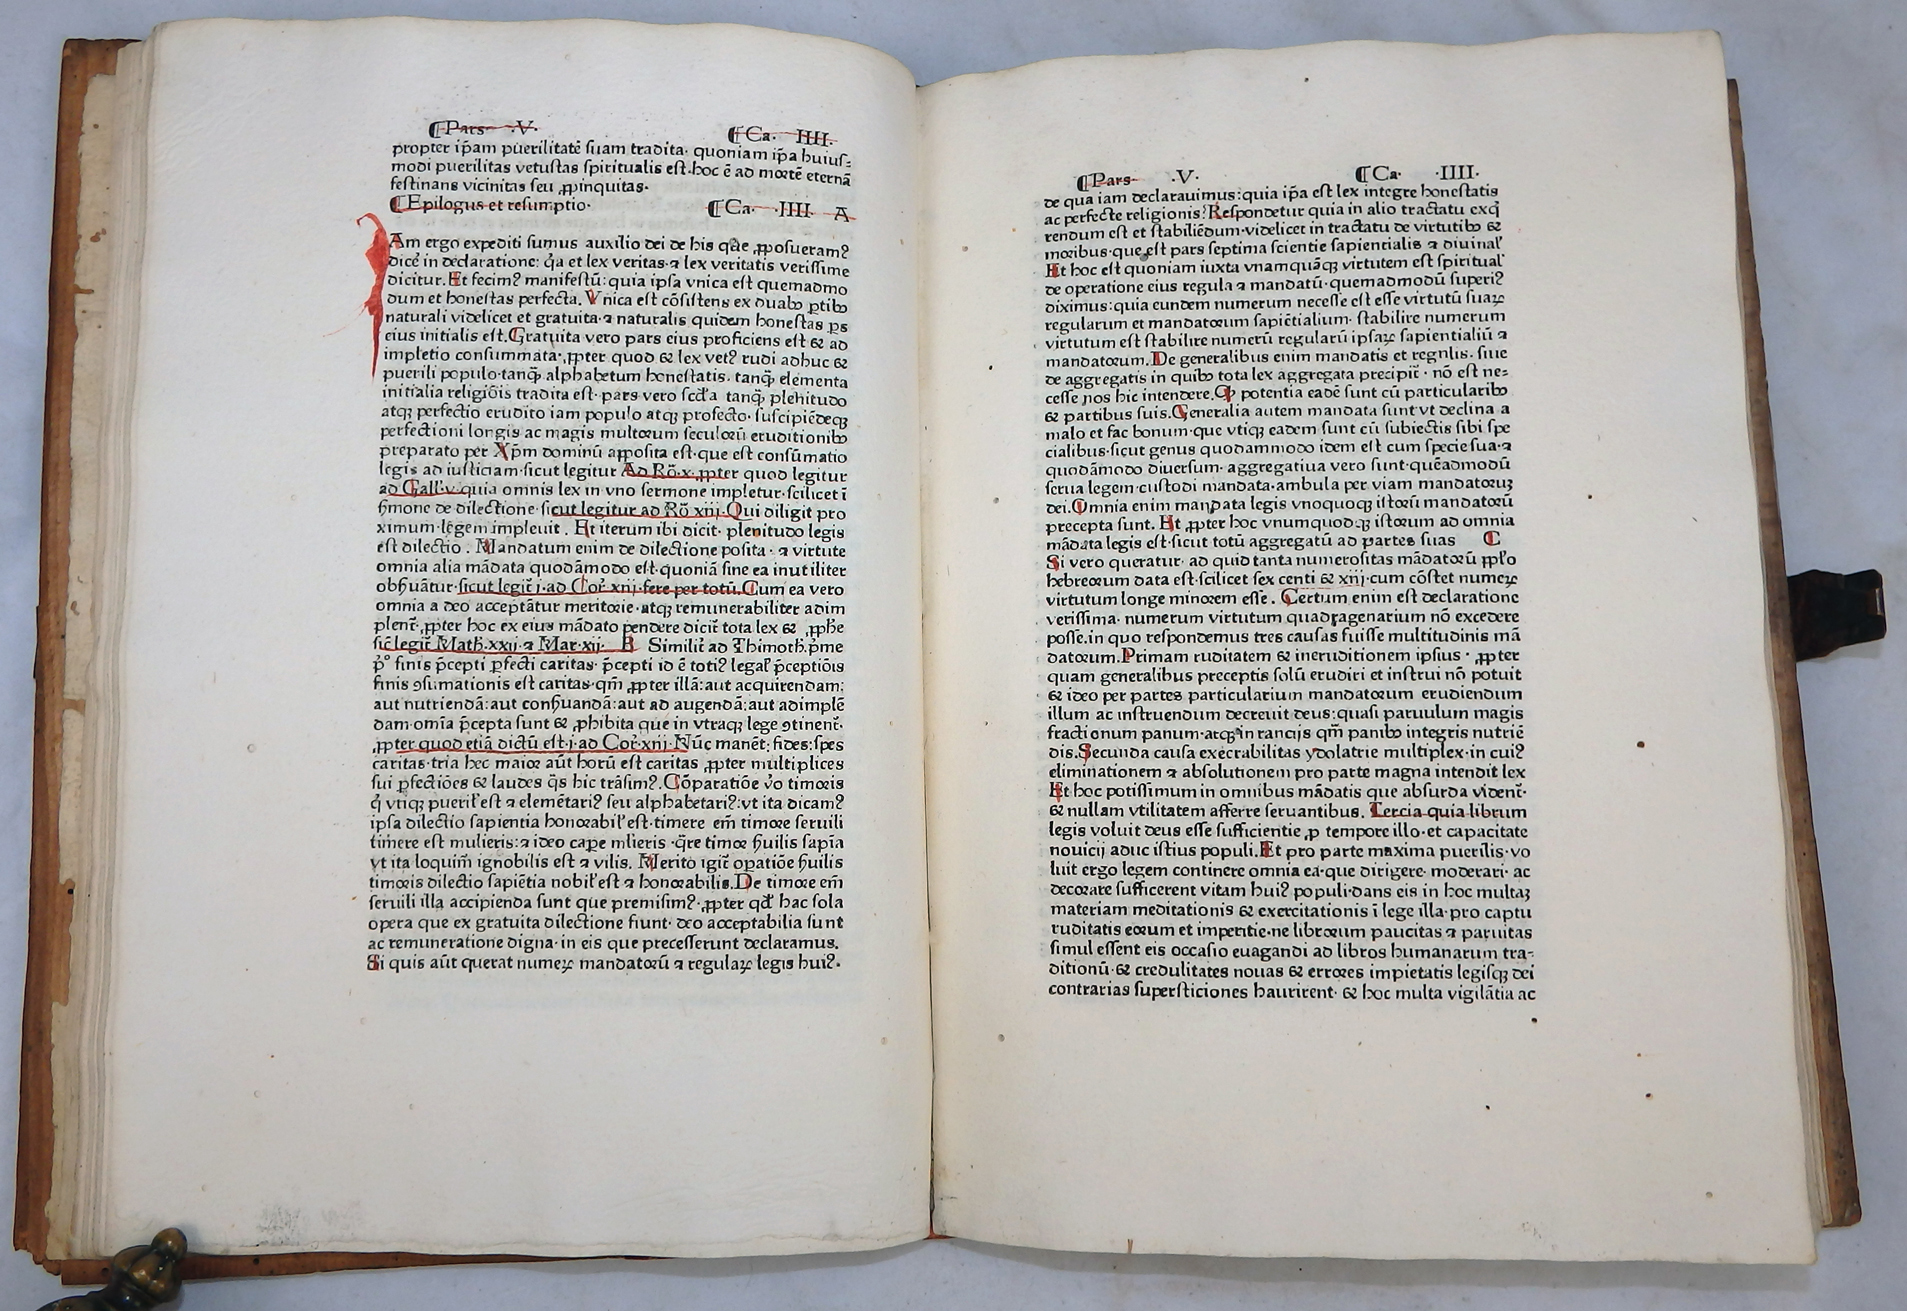 ¶Pars ·V· ¶Ca· IIII·
propter ip̄am puerilitatē suam tradita· quoniam ip̄a huius⸗
modi puerilitas vetustas spiritualis est·hoc ē ad mortē eternā
festinans vicinitas seu ꝓpinquitas·
¶Epilogus et resumptio· ¶Ca· ·IIII· A
Am ergo expediti sumus auxilio dei de his que ꝓposueramꝰ
dicē in declaratione: q̇a et lex veritas·⁊ lex veritatis verissime
dicitur. Et fecimꝰ manifestū: quia ipsa vnica est quemadmo
dum et honestas perfecta. Vnica est cōsistens ex duabꝰ ꝑtibꝰ
naturali videlicet et gratuita·⁊ naturalis quidem honestas ꝑs
eius initialis est. Gratuita vero pars eius proficiens est & ad
impletio consummata·ꝓpter quod & lex vetꝰ rudi adhuc &
puerili populo·tanq̄ʒ alphabetum honestatis· tanq̄ʒ elementa
initialia religiōis tradita est· pars vero scd̄a tanq̄ʒ plenitudo
atqʒ perfectio erudito iam populo atqʒ profecto· suscipiēdeqʒ
perfectioni longis ac magis multorum seculorū eruditionibꝰ
preparato per Xp̄m dominū apposita est·que est consūmatio
legis ad iusticiam·sicut legitur Ad Rō·x·ꝓpter quod legitur
ad Gall·v·quia omnis lex in vno sermone impletur·scilicet ī
ẜmone de dilectione·sicut legitur ad Rō xiij·Qui diligit pro
ximum·legem impleuit . Et iterum ibi dicit· plenitudo legis
est dilectio . Mandatum enim de dilectione posita· ⁊ virtute
omnia alia mādata quodāmodo est·quoniā sine ea inutiliter
obẜuātur·sicut legit̄ j·ad Cor̄·xiij·fere per totū.Cum ea vero
omnia a deo acceptātur meritorie·atqʒ remunerabiliter adim
plent̄·ꝓpter hoc ex eius mādato pendere dicit̄ tota lex & ꝓphe
sic̄ legit̄ Math·xxij·⁊ Mar·xij· B Similit̄ ad Thimoth·p̄me
p̄º finis p̄cepti ꝑfecti caritas· p̄cepti id ē totiꝰ legał p̄ceptiōis
finis ꝯsumationis est caritas·qm̄ ꝓpter illā: aut acquirendam:
aut nutriendā: aut conẜuandā: aut ad augendā: aut adimplē
dam·om̄ia p̄cepta sunt & ꝓhibita que in vtraqʒ lege ꝯtinent̄·
ꝓpter quod etiā dictū est·j·ad Cor̄·xiij·Nūc manēt: fides: spes
caritas·tria hec maior aūt horū est caritas ꝓpter multiplices
sui ꝑfectiōes & laudes q̄s hic trāsimꝰ. Cōparatiōe v̄o timoris
q̇ vtiqʒ puerił est ⁊ elemētariꝰ seu alphabetariꝰ: vt ita dicamꝰ
ipsa dilectio sapientia honorabił est·timere em̄ timore seruili
timere est mulieris: ⁊ ideo caꝑe mlieris ·q̄re timor ẜuilis sapīa
vt ita loquim̄ ignobilis est ⁊ vilis. Merito igit̄ oꝑatiōe ẜuilis
timoris dilectio sapiētia nobił est ⁊ honorabilis. De timore em̄
seruili illa accipienda sunt que premisimꝰ·ꝓpter qd̄ hac sola
opera que ex gratuita dilectione fiunt· deo acceptabilia sunt
ac remuneratione digna· in eis que precesserunt declaramus.
Si quis aūt querat numeꝝ mandatorū ⁊ regulaꝝ legis huiꝰ·
¶Pars· ·V· ¶Ca· ·IIII·
de qua iam declarauimus: quia ip̄a est lex integre honestatis
ac perfecte religionis: Respondetur quia in alio tractatu exq̇
rendum est et stabiliēdum·videlicet in tractatu de virtutibꝰ &
moribus·que est pars septima scientie sapientialis ⁊ diuinał
Et hoc est quoniam iuxta vnamquāqʒ virtutem est spirituał
de operatione eius regula ⁊ mandatū·quemadmodū superiꝰ
diximus: quia eundem numerum necesse est esse virtutū suaꝝ
regularum et mandatorum sapiētialium· stabilire numerum
virtutum est stabilire numerū regularū ipsaꝝ sapientialiū ⁊
mandatorum. De generalibus enim mandatis et regnlis· siue
de aggregatis in quibꝰ tota lex aggregata precipit̄· nō est ne⸗
cesse nos hic intendere. Qꝫ potentia eadē sunt cū particularibꝰ
& partibus suis. Generalia autem mandata sunt vt declina a
malo et fac bonum·que vtiqʒ eadem sunt cū subiectis sibi spe
cialibus·sicut genus quodammodo idem est cum specie sua·⁊
quodāmodo diuersum· aggregatiua vero sunt·quēadmodū
serua legem·custodi mandata·ambula per viam mandatoruʒ
dei. Omnia enim mandata legis vnoquoqʒ istorū mandatorū
precepta sunt. Et ꝓpter hoc vnumquodqʒ istorum ad omnia
mādata legis est·sicut totū aggregatū ad partes suas C
Si vero queratur· ad quid tanta numerositas mādatorū pp̄lo
hebreorum data est·scilicet sex centi & xiij·cum cōstet numeꝝ
virtutum longe minorem esse . Certum enim est declaratione
verissima· numerum virtutum quadragenarium nō excedere
posse·in quo respondemus tres causas fuisse multitudinis mā
datorum. Primam ruditatem & ineruditionem ipsius· ꝓpter
quam generalibus preceptis solū erudiri et instrui nō potuit
& ideo per partes particularium mandatorum erudiendum
illum ac instruendum decreuit deus: quasi paruulum magis
fractionum panum·atqʒ in rancijs qm̄ panibꝰ integris nutriē
dis. Secunda causa execrabilitas ydolatrie multiplex·in cuiꝰ
eliminationem ⁊ absolutionem pro parte magna intendit lex
Et hoc potissimum in omnibus mādatis que absurda vident̄·
& nullam vtilitatem afferre seruantibus. Tercia quia librum
legis voluit deus esse sufficientie ꝓ tempore illo·et capacitate
nouicij aduc istius populi. Et pro parte maxima puerilis·vo
luit ergo legem continere omnia ea·que dirigere· moderari· ac
decorare sufficerent vitam huiꝰ populi·dans eis in hoc multaʒ
materiam meditationis & exercitationis ī lege illa·pro captu
ruditatis eorum et imperitie·ne librorum paucitas ⁊ paruitas
simul essent eis occasio euagandi ad libros humanarum tra⸗
ditionū·& credulitates nouas & errores impietatis legisqʒ dei
contrarias supersticiones haurirent· & hoc multa vigilātia ac